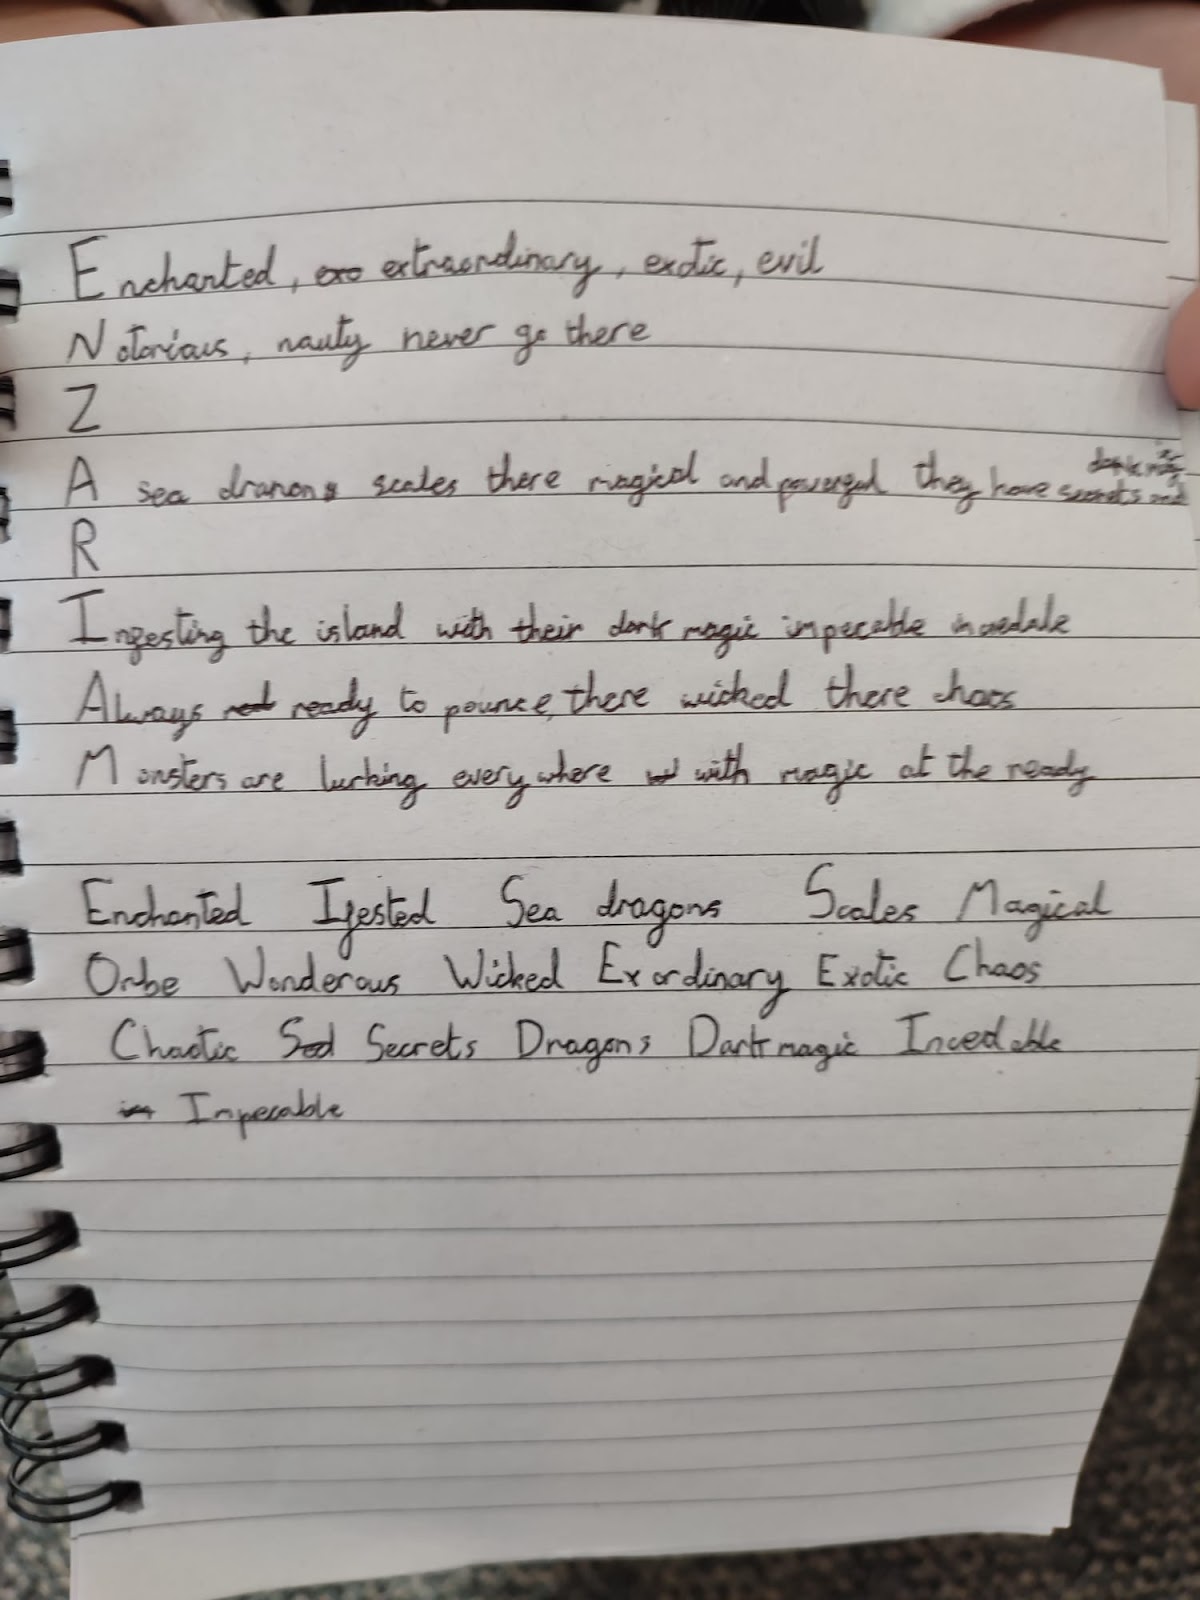 Enchanted, exo extraordinary, exotic, evil
Notorious, nauty never go there
Z
A sea dranons scales there magical and powergul they have secrets and dark magic
R
Ingesting the island with their dark magic impecable incredale
Always red ready to pounce, there wicked there chaos
Monsters are lurking everywhere with magic at the ready
Enchanted Ifested Sea dragons Scales Magical
Orbe Wonderous Wicked Exordinary Exotic Chaos
Chaotic Sed Secrets Dragons Dark magic Incedable
im Impecable